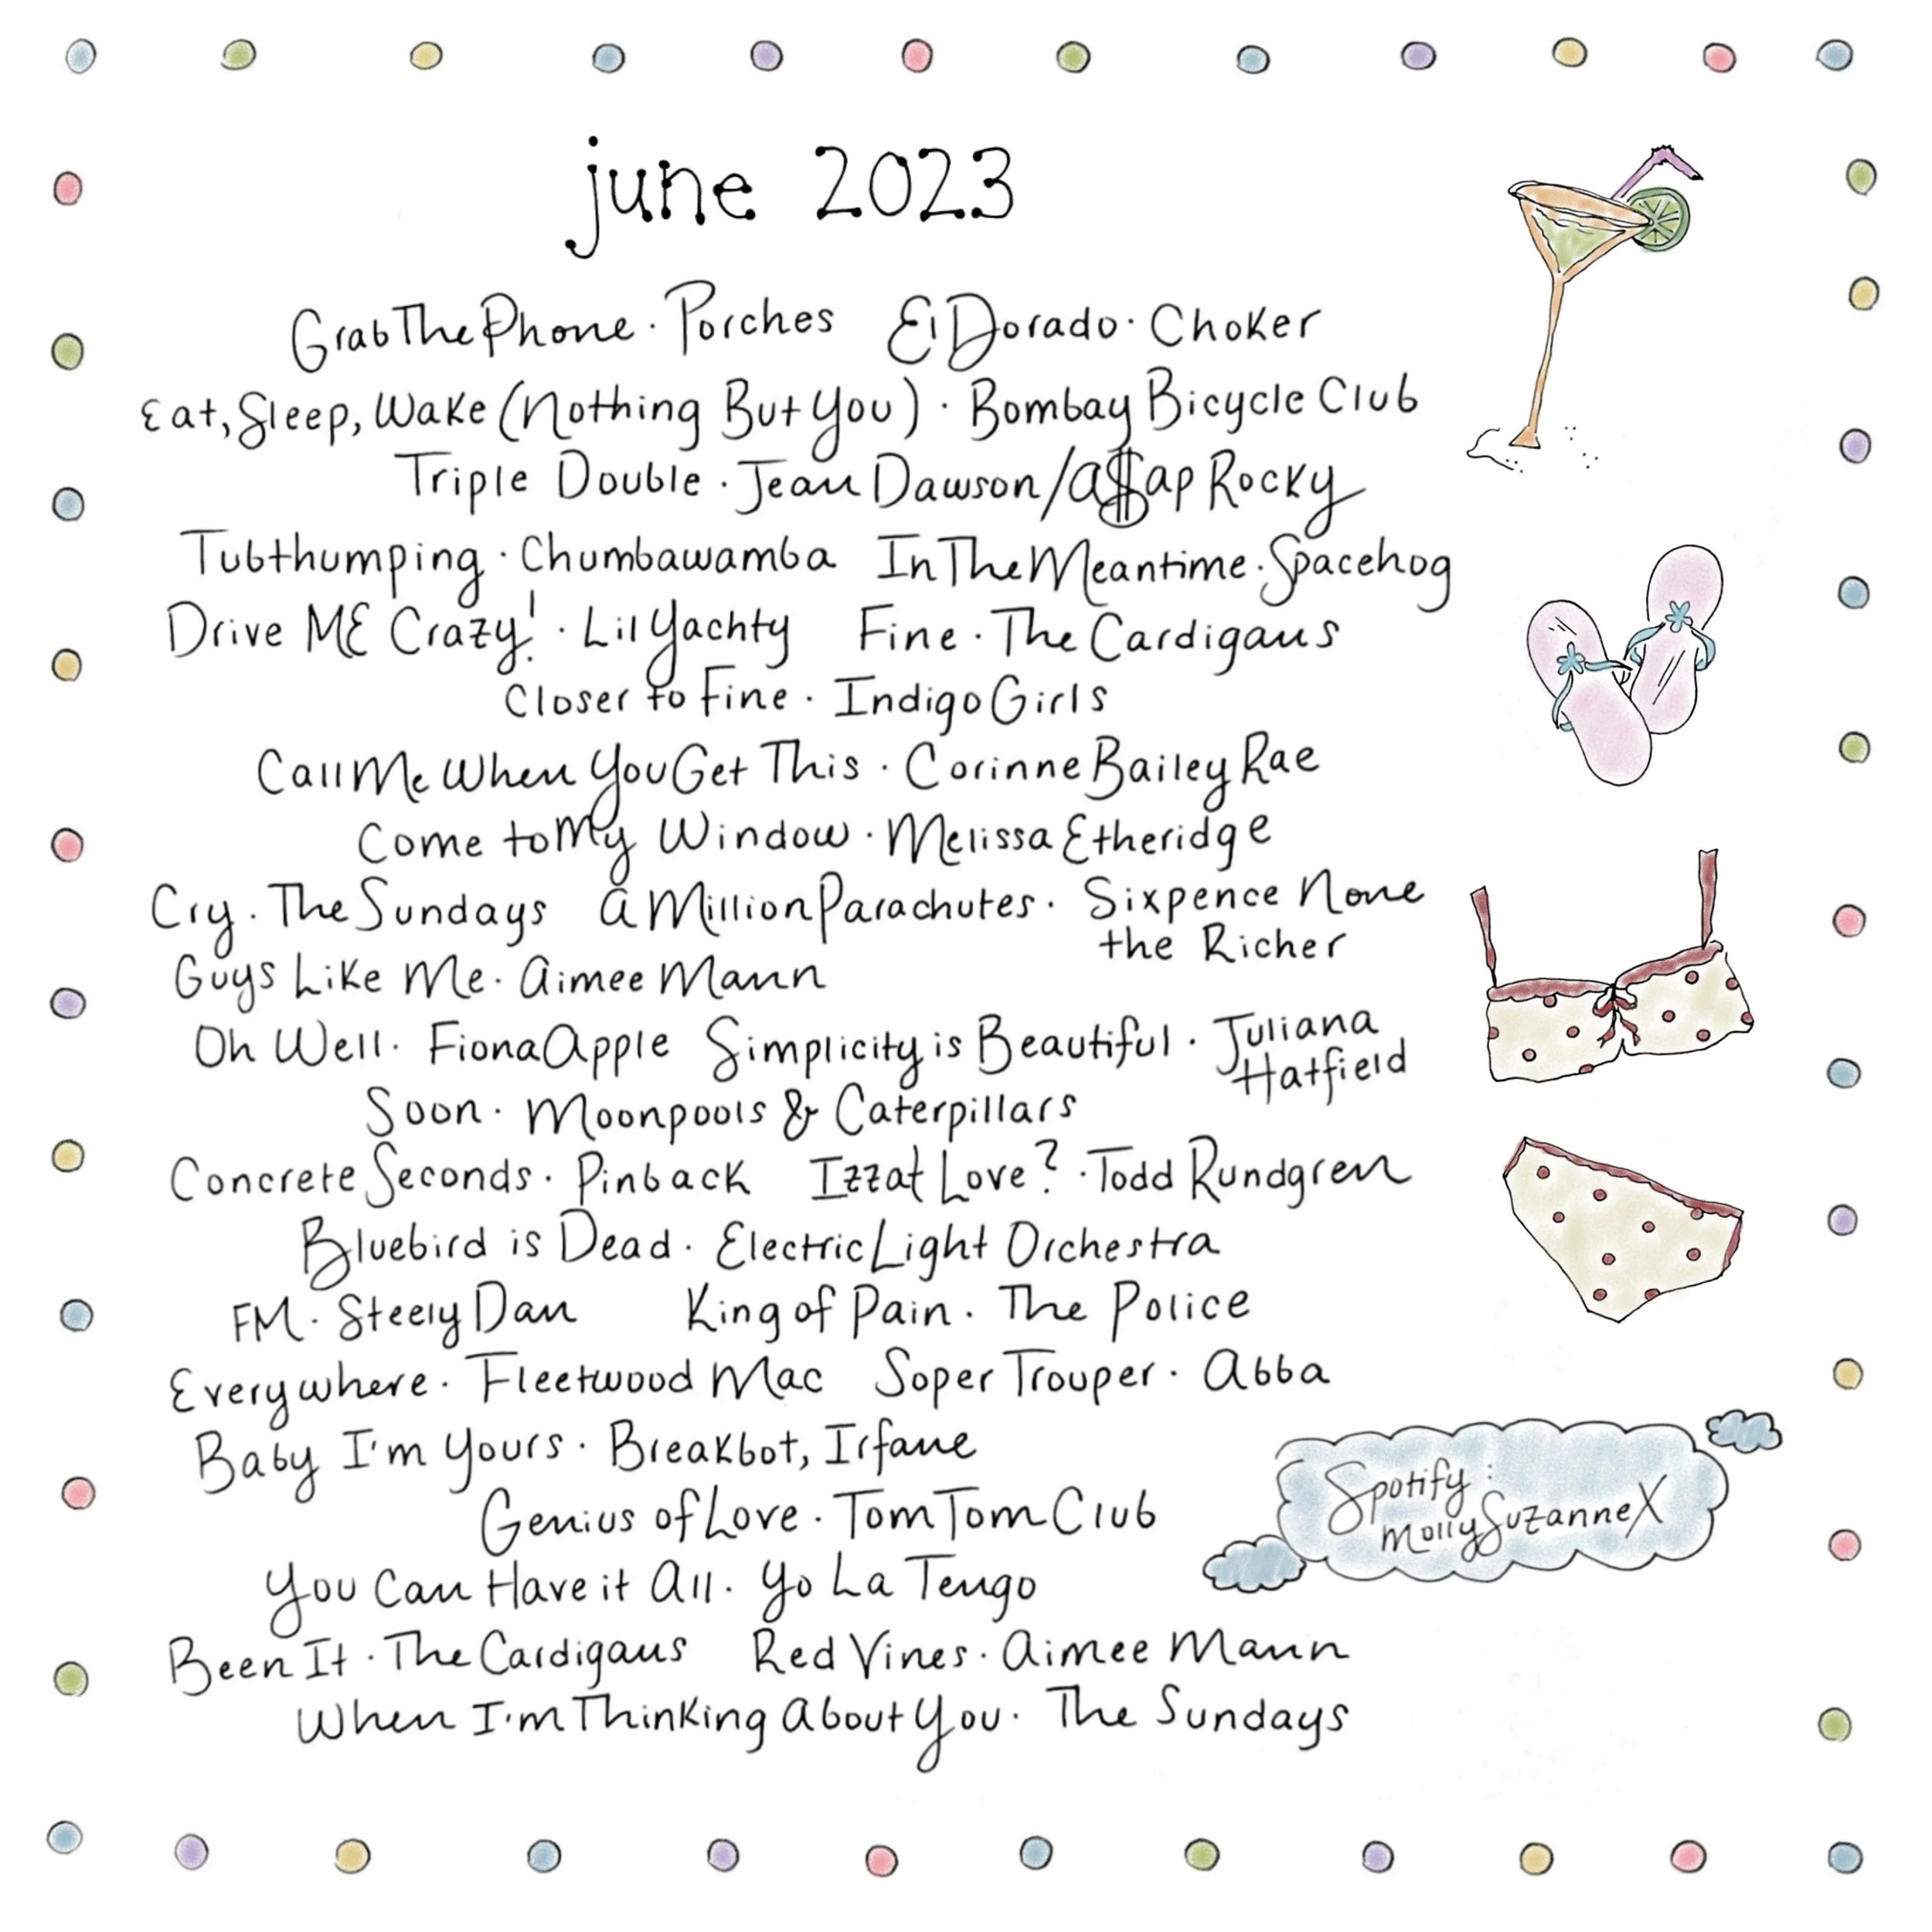 june 2023
Grab The Phone · Porches El Dorado · Choker
Eat, Sleep, Wake (Nothing But You) · Bombay Bicycle Club
Triple Double · Jean Dawson/A$ap Rocky
Tubthumping · Chumbawamba In The Meantime · Spacehog
Drive ME Crazy! · Lil Yachty Fine · The Cardigans
Closer to Fine · Indigo Girls
Call Me When You Get This · Corinne Bailey Rae
Come to My Window · Melissa Etheridge
Cry · The Sundays A Million Parachutes · Sixpence None
the Richer
Guys Like Me · Aimee Mann
Oh Well · Fiona Apple Simplicity is Beautiful · Juliana
Hatfield
Soon · Moonpools & Caterpillars
Concrete Seconds · Pinback Izzat Love? · Todd Rundgren
Bluebird is Dead · Electric Light Orchestra
FM · Steely Dan King of Pain · The Police
Everywhere · Fleetwood Mac Soper Trouper · Abba
Baby I'm Yours · Breakbot, Irfane
Genius of Love · Tom Tom Club
Spotify:
MollySuzanneX
You Can Have it All · Yo La Tengo
Been It · The Cardigans Red Vines · Aimee Mann
When I'm Thinking About You · The Sundays